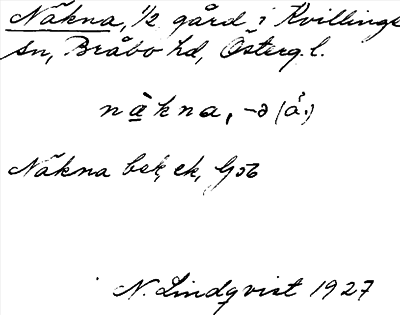 Näkna, 1/2 gård i Kvillinge
sn, Bråbo hd, Österg. l.
nä̀kna, -ə (å.)
Näkna bsk, ek,
N. Lindqvist 1927